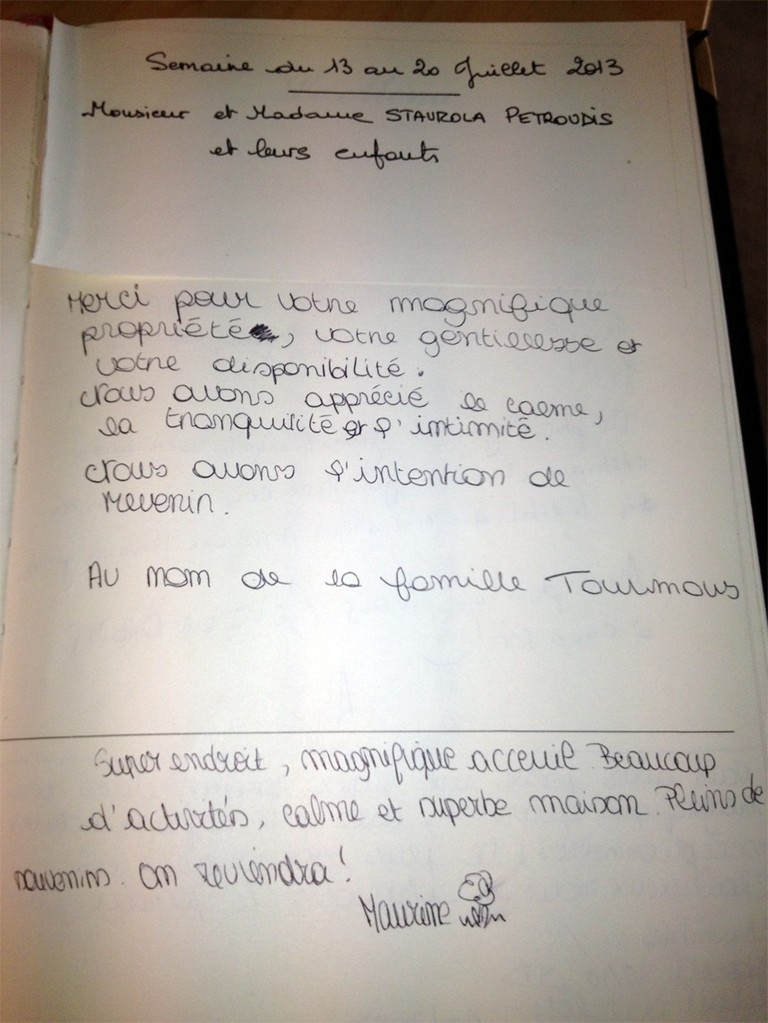 Semaine du 13 au 20 Juillet 2013
Monsieur et Madame STAUROLA PETROUDIS
et leurs enfants
Merci pour votre magnifique
propriété, votre gentillesse et
votre disponibilité.
Nous avons apprécié le calme,
la tranquilité et l'intimité.
Nous avons l'intention de
revenir.
Au nom de la famille Tournous
Super endroit, magnifique acceuil. Beaucoup
d'activités, calme et superbe maison. Pleins de
souvenirs. on reviendra!
Maurine